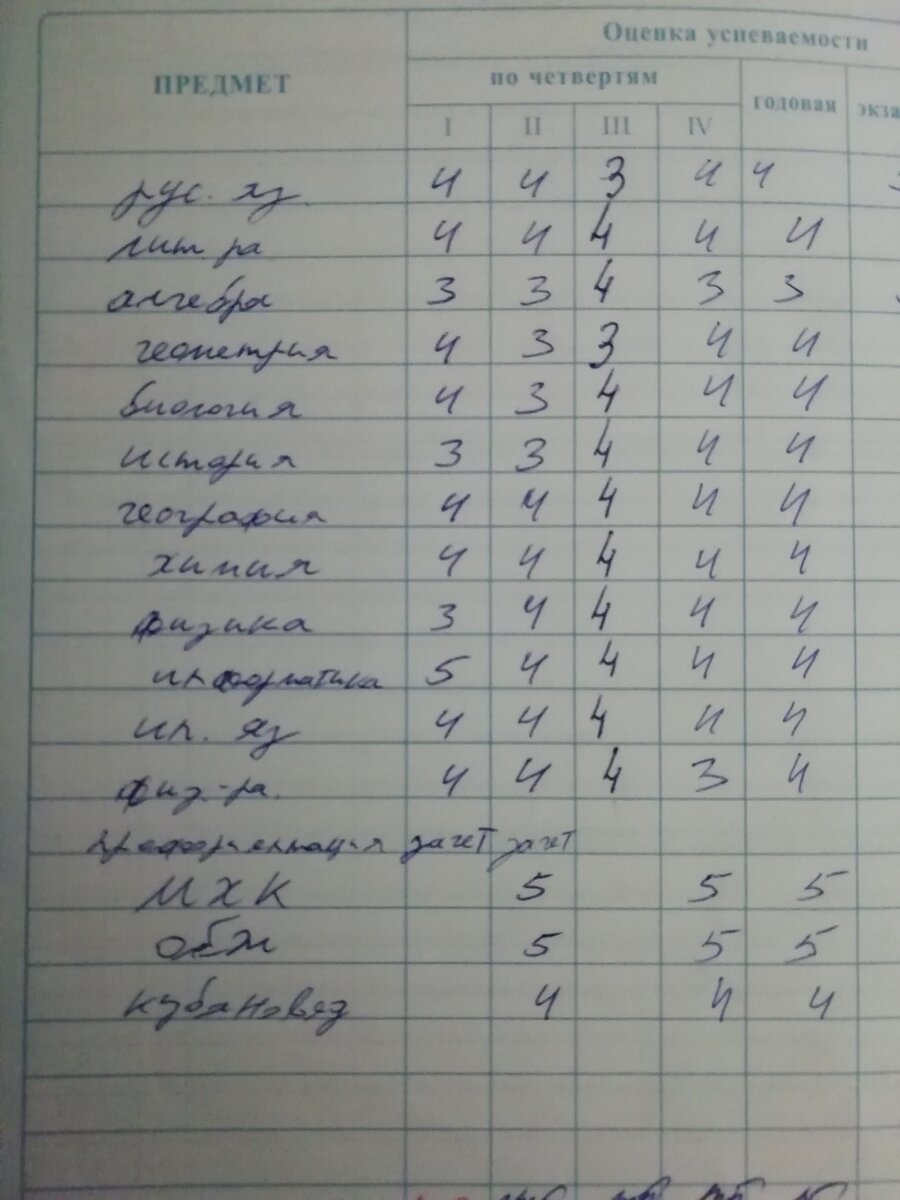 Оценка успеваемости
ПРЕДМЕТ по четвертям годовая экза
I II III IV
рус. яз. 4 4 3 4 4
лит ра 4 4 4 4 4
алгебра 3 3 4 3 3
геометрия 4 3 3 4 4
биология 4 3 4 4 4
история 3 3 4 4 4
география 4 4 4 4 4
химия 4 4 4 4 4
физика 3 4 4 4 4
информатика 5 4 4 4 4
ин. яз 4 4 4 4 4
физ-ра. 4 4 4 3 4
профориентация зачет зачет
МХК 5 5 5
обж 5 5 5
кубановед 4 4 4